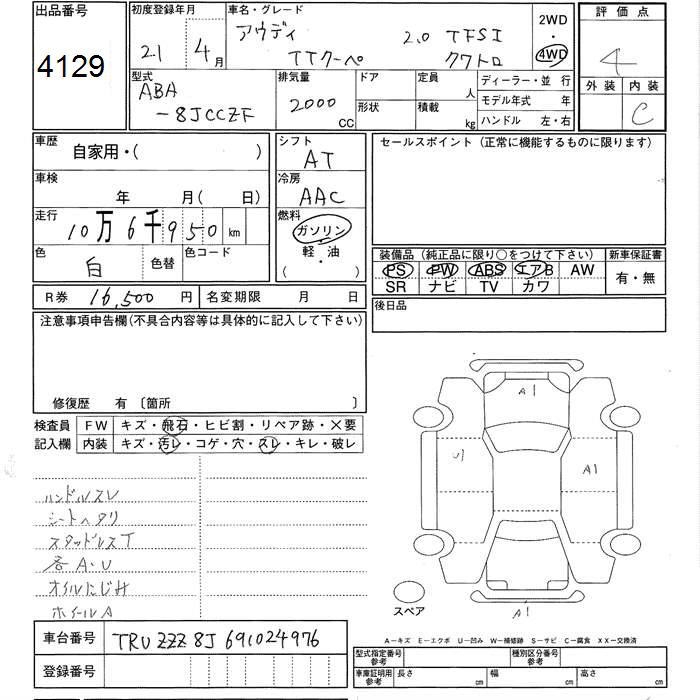 出品番号
4129
初度登録年月
21 4月
車名・グレード
アウディ 2.0 TFSI
TTクーペ クワトロ
2WD
・
4WD
評価点
4
外装 内装
C
型式
ABA
-8JCCZF
排気量
2000
CC
ドア
形状
定員
人
積載
kg
ディーラー・並行
モデル年式 年
ハンドル 左・右
車歴
自家用・( )
車検
年 月( 日)
走行
10万6千950 km
色
白
色替
色コード
シフト
AT
冷房
AAC
燃料
ガソリン
・
軽・油
( )
セールスポイント (正常に機能するものに限ります)
装備品 (純正品に限り○をつけて下さい)
PS PW ABS エアB AW
SR ナビ TV カワ
新車保証書
有・無
R券 16,500 円
名変期限 月 日
後日品
注意事項申告欄(不具合内容等は具体的に記入して下さい)
修復歴 有 〔箇所 〕
検査員
記入欄
FW キズ・飛石・ヒビ割・リペア跡・×要
内装 キズ・汚レ・コゲ・穴・スレ・キレ・破レ
ハンドルスレ
シートヘタリ
スタッドレスT
各A・U
オイルにじみ
ホイールA
A1
U1
A1
A1
スペア
A−キズ E−エクボ U−凹み W−補修跡 S−サビ C−腐食 XX−交換済
車台番号
TRUZZZ8J691024976
登録番号
型式指定番号
参考
種別区分番号
参考
車庫証明用
参考
長さ cm
幅 cm
高さ cm